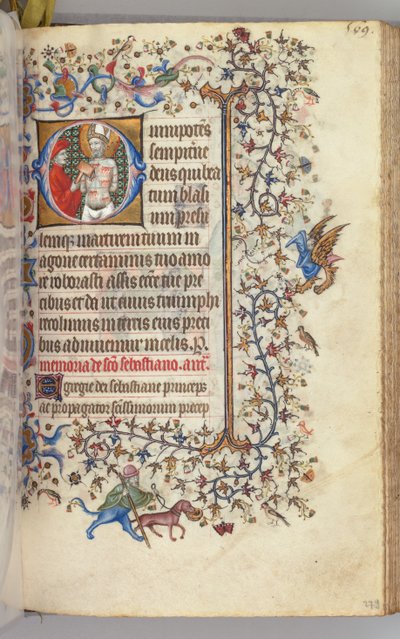 Omnipotēs
sempitne
deus qui bea
tum blasi
um presu
lemq; martirem tuum in
agone certaminis tuo amo
re roborasti assis eccē tue pre
cibus et da ut cuius triumphū
recolimus in terris eius preci
bus adiuuemur in celis. P.
memoria de sc̄o sebastiano. ant.
Egregie dei sebastiane princeps
ac propagator sc̄issimorum precep